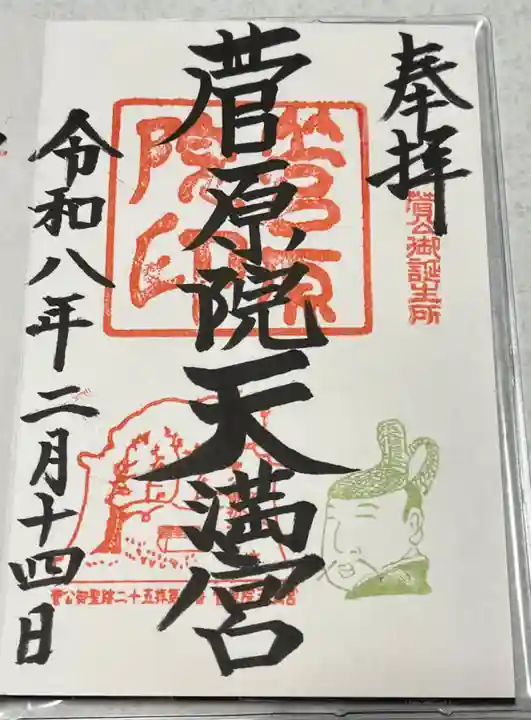 奉拝
菅公御誕生所
菅原院天満宮
菅原院印
令和八年二月十四日
菅公御聖蹟二十五拝第